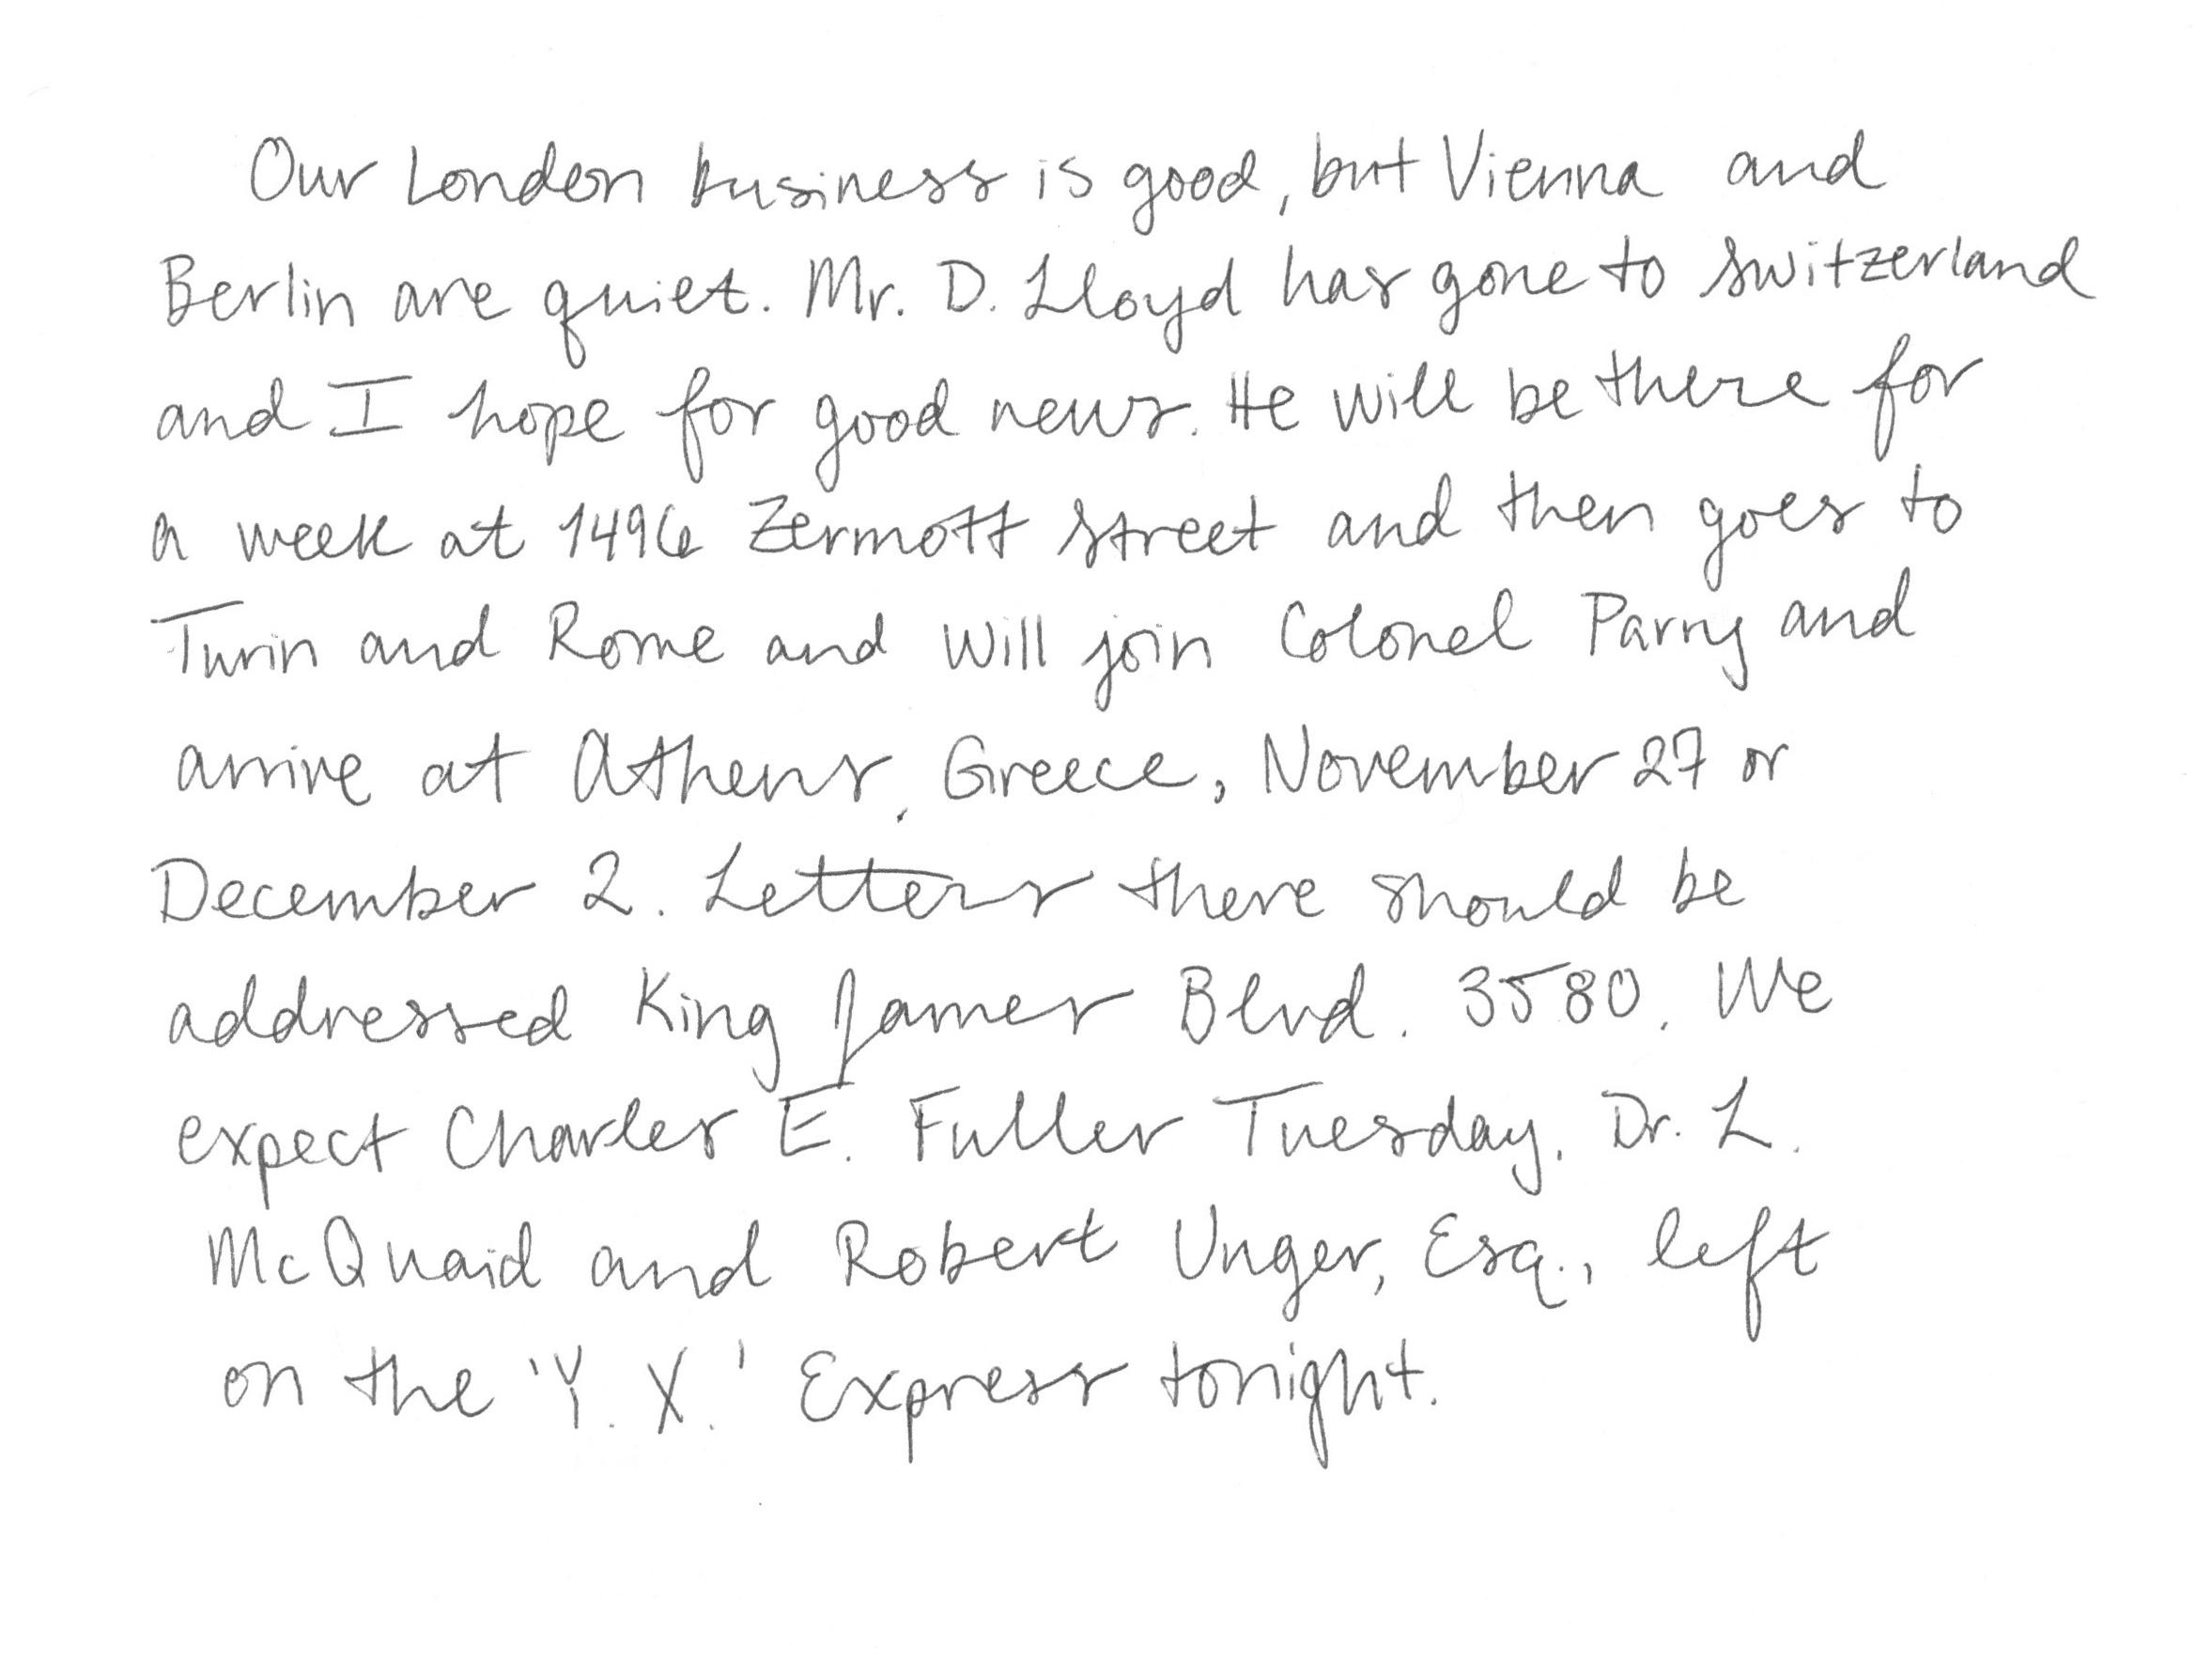 Our London business is good, but Vienna and
Berlin are quiet. Mr. D. Lloyd has gone to Switzerland
and I hope for good news. He will be there for
a week at 1496 Zermott Street and then goes to
Turin and Rome and will join Colonel Parry and
arrive at Athens, Greece, November 27 or
December 2. Letters there should be
addressed King James Blvd. 3580. We
expect Charles E. Fuller Tuesday. Dr. L.
McQuaid and Robert Unger, Esq., left
on the 'Y. X.' Express tonight.